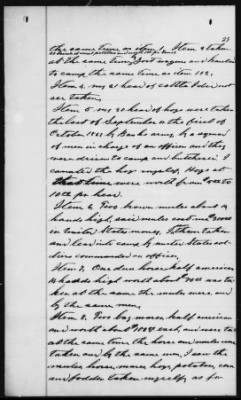 25
the same time as item
at the same time, Govt wagons and hauled
to camp the same time as item 1 & 2.
Item 4, my 21 head of cattle I did not
see taken,
Item 5, my 30 head of hogs were taken
the last of September or the first of
October 1863 by Banks army by a squad
of men in charge of an officer and they
were driven to camp and butchered. I
counted the hogs myself, Hogs at
that time were worth from
per head.
Item 6, Two brown mules about 14
hands high, said mules cost me
in United States money, I, them taken
and lead into camp by United States sol-
diers commanded an officer,
Item 7, One dun horse half american
14 hands high worth about was ta-
ken at the same the mules were, and
by the same men,
Item 8, Two bay mares half american
and worth about each, and were ta-
at the same time the horse and mules were
taken and by the same men, I saw the
mules, horse, mares, hogs, potatoes, corn
and fodder taken myself, as for